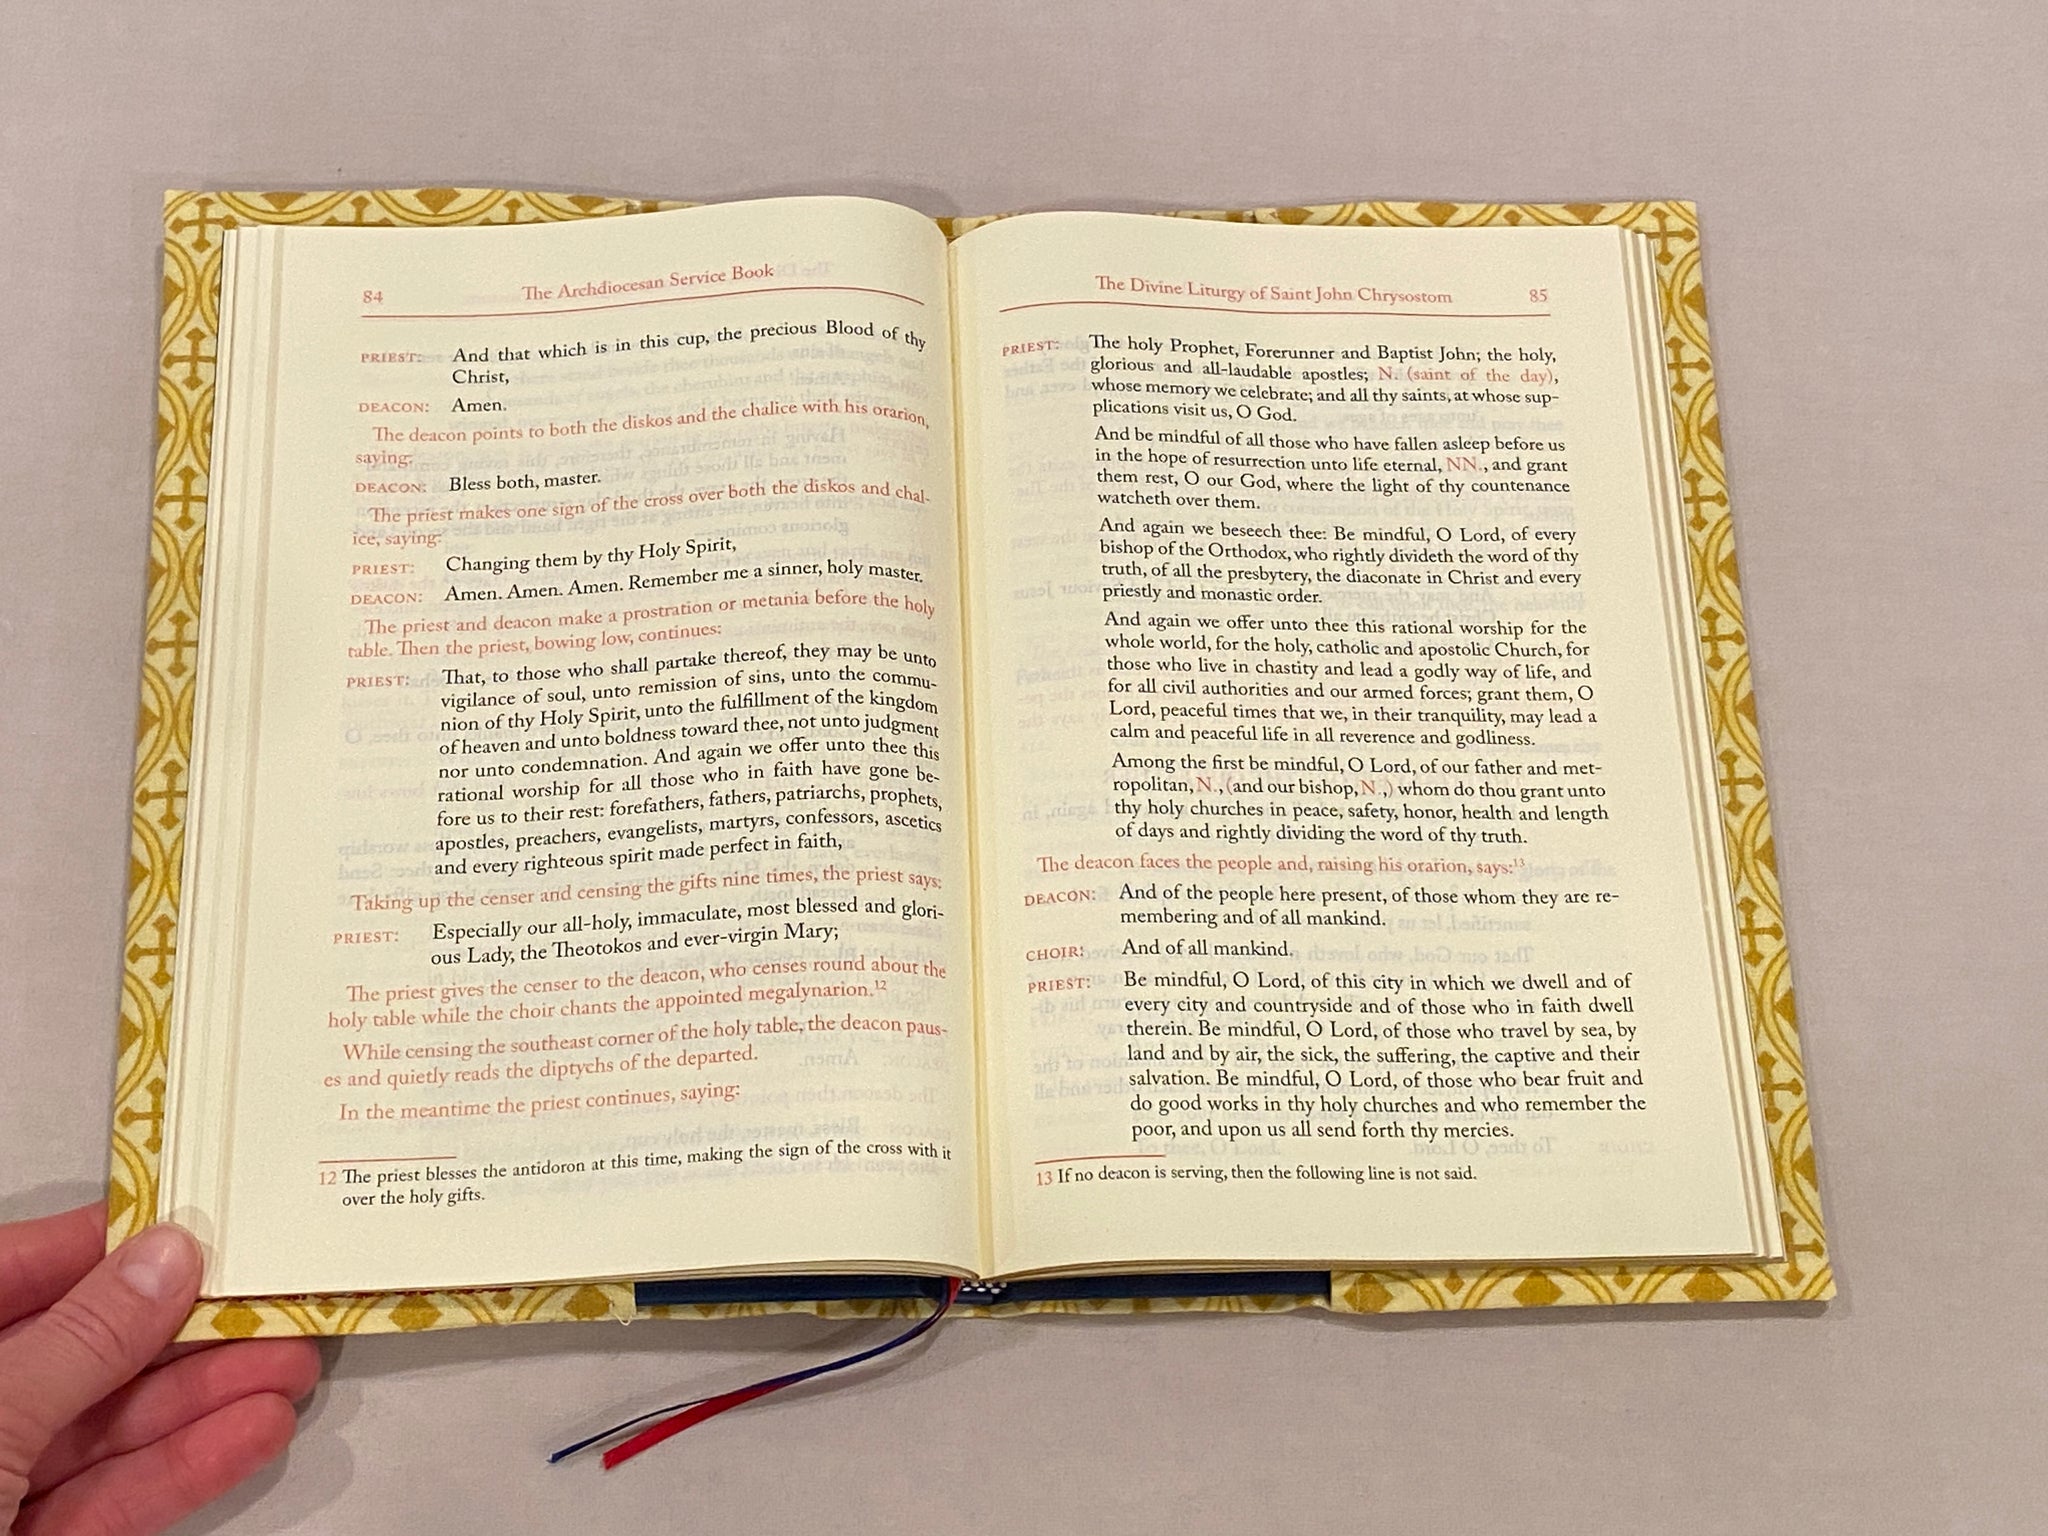 84
The Archdiocesan Service Book
PRIEST: And that which is in this cup, the precious Blood of thy
Christ,
DEACON: Amen.
The deacon points to both the diskos and the chalice with his orarion,
saying:
DEACON: Bless both, master.
The priest makes one sign of the cross over both the diskos and chal-
ice, saying:
PRIEST: Changing them by thy Holy Spirit,
DEACON: Amen. Amen. Amen. Remember me a sinner, holy master.
The priest and deacon make a prostration or metania before the holy
table. Then the priest, bowing low, continues:
PRIEST: That, to those who shall partake thereof, they may be unto
vigilance of soul, unto remission of sins, unto the commu-
nion of thy Holy Spirit, unto the fulfillment of the kingdom
of heaven and unto boldness toward thee, not unto judgment
nor unto condemnation. And again we offer unto thee this
rational worship for all those who in faith have gone be-
fore us to their rest: forefathers, fathers, patriarchs, prophets,
apostles, preachers, evangelists, martyrs, confessors, ascetics
and every righteous spirit made perfect in faith,
Taking up the censer and censing the gifts nine times, the priest says:
PRIEST: Especially our all-holy, immaculate, most blessed and glori-
ous Lady, the Theotokos and ever-virgin Mary;
The priest gives the censer to the deacon, who censes round about the
holy table while the choir chants the appointed megalynarion.12
While censing the southeast corner of the holy table, the deacon paus-
es and quietly reads the diptychs of the departed.
In the meantime the priest continues, saying:
12 The priest blesses the antidoron at this time, making the sign of the cross with it
over the holy gifts.
The Divine Liturgy of Saint John Chrysostom
85
PRIEST: The holy Prophet, Forerunner and Baptist John; the holy,
glorious and all-laudable apostles; N. (saint of the day),
whose memory we celebrate; and all thy saints, at whose sup-
plications visit us, O God.
And be mindful of all those who have fallen asleep before us
in the hope of resurrection unto life eternal, NN., and grant
them rest, O our God, where the light of thy countenance
watcheth over them.
And again we beseech thee: Be mindful, O Lord, of every
bishop of the Orthodox, who rightly divideth the word of thy
truth, of all the presbytery, the diaconate in Christ and every
priestly and monastic order.
And again we offer unto thee this rational worship for the
whole world, for the holy, catholic and apostolic Church, for
those who live in chastity and lead a godly way of life, and
for all civil authorities and our armed forces; grant them, O
Lord, peaceful times that we, in their tranquility, may lead a
calm and peaceful life in all reverence and godliness.
Among the first be mindful, O Lord, of our father and met-
ropolitan, N., (and our bishop, N.,) whom do thou grant unto
thy holy churches in peace, safety, honor, health and length
of days and rightly dividing the word of thy truth.
The deacon faces the people and, raising his orarion, says:13
DEACON: And of the people here present, of those whom they are re-
membering and of all mankind.
CHOIR: And of all mankind.
PRIEST: Be mindful, O Lord, of this city in which we dwell and of
every city and countryside and of those who in faith dwell
therein. Be mindful, O Lord, of those who travel by sea, by
land and by air, the sick, the suffering, the captive and their
salvation. Be mindful, O Lord, of those who bear fruit and
do good works in thy holy churches and who remember the
poor, and upon us all send forth thy mercies.
13 If no deacon is serving, then the following line is not said.